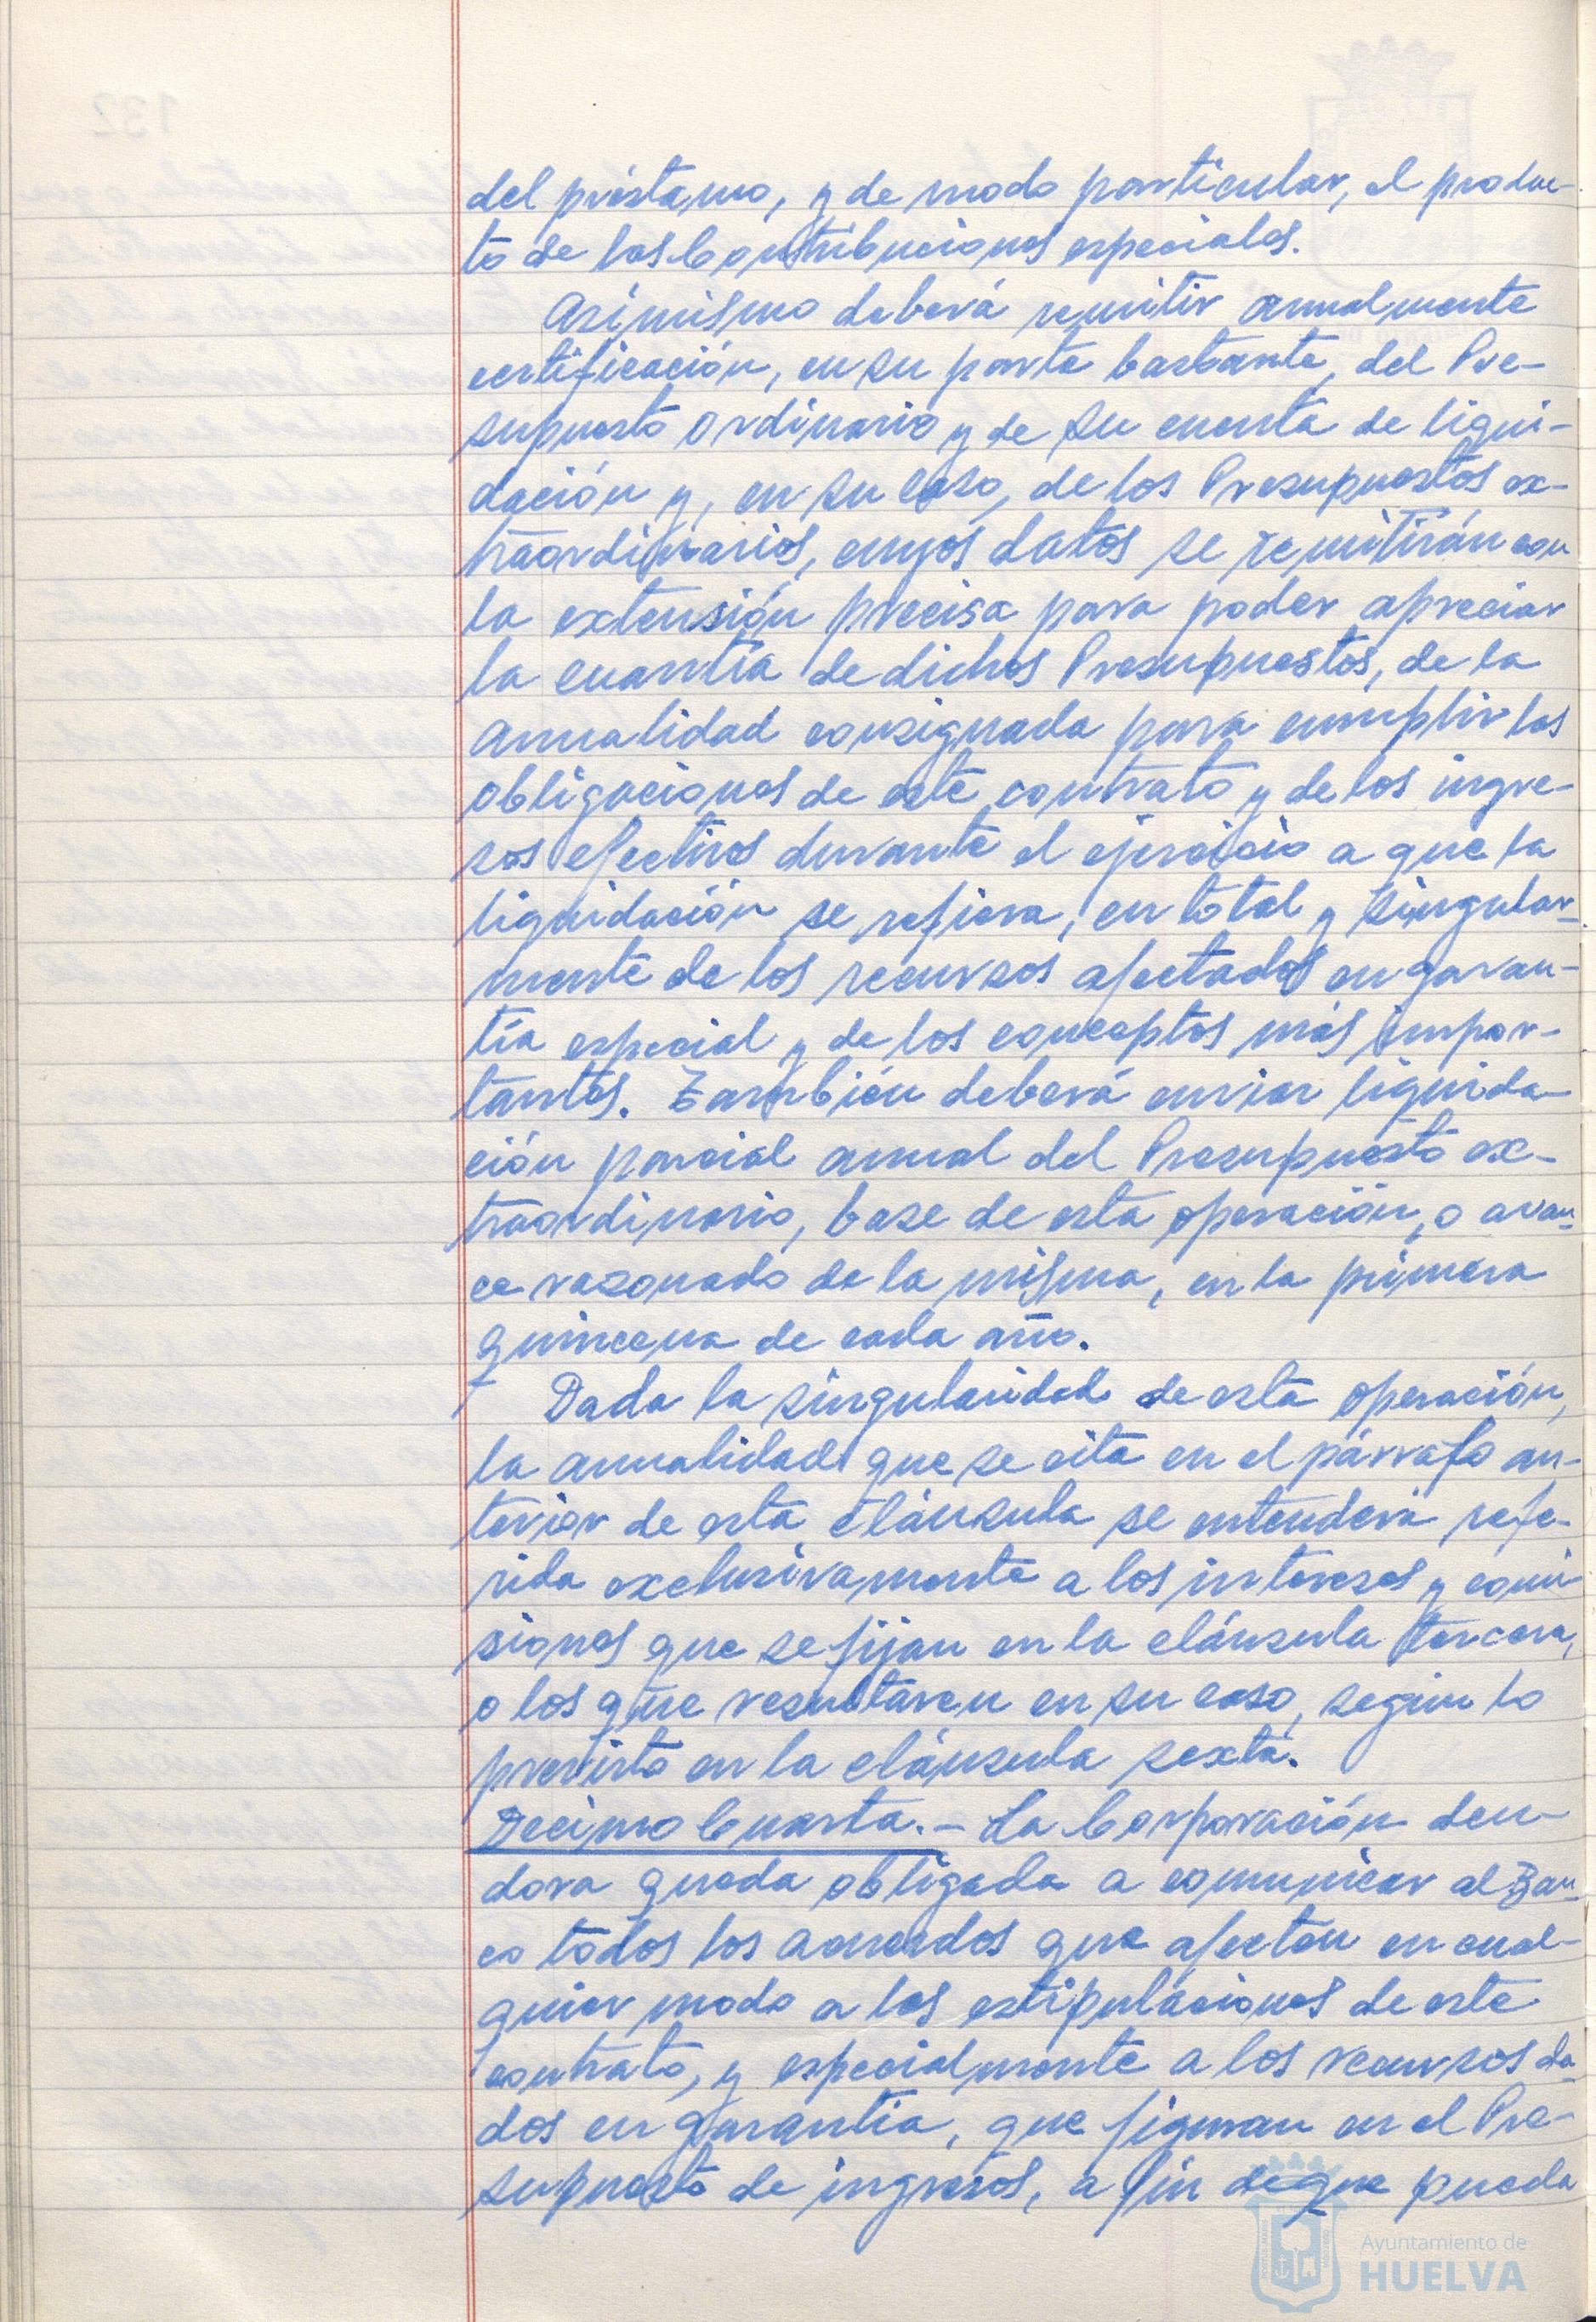 del préstamo, y de modo particular, el produc-
to de las Contribuciones especiales.
Asimismo deberá remitir anualmente
certificación, en su parte bastante, del Pre-
supuesto ordinario y de su cuenta de liqui-
dación y, en su caso, de los Presupuestos ex-
traordinarios, cuyos datos se remitirán con
la extensión precisa para poder apreciar
la cuantía de dichos Presupuestos, de la
anualidad consignada para cumplir las
obligaciones de este contrato y de los ingre-
sos efectivos durante el ejercicio a que la
liquidación se refiera, en total y singular-
mente de los recursos afectados en garan-
tía especial y de los conceptos más impor-
tantes. También deberá enviar liquida-
ción parcial anual del Presupuesto ex-
traordinario, base de esta operación, o avan-
ce razonado de la misma, en la primera
quincena de cada año.
Dada la singularidad de esta operación,
la anualidad que se cita en el párrafo an-
terior de esta cláusula se entenderá refe-
rida exclusivamente a los intereses y comi-
siones que se fijan en la cláusula tercera,
o los que resultaren en su caso, según lo
previsto en la cláusula sexta.
Decimo Cuarta.- La Corporación deu-
dora queda obligada a comunicar al Ban-
co todos los acuerdos que afecten en cual-
quier modo a las estipulaciones de este
contrato, y especialmente a los recursos da-
dos en garantía, que figuran en el Pre-
supuesto de ingresos, a fin de que pueda
Ayuntamiento de
HUELVA